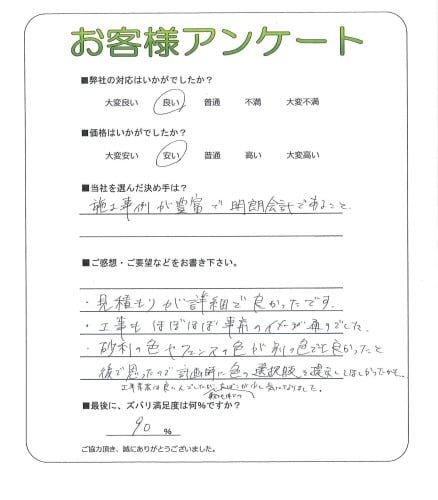 お客様アンケート
■弊社の対応はいかがでしたか？
大変良い 良い 普通 不満 大変不満
■価格はいかがでしたか？
大変安い 安い 普通 高い 大変高い
■当社を選んだ決め手は？
施工事例が豊富で明朗会計であること
■ご感想・ご要望などをお書き下さい。
・見積もりが詳細で良かったです.
・工事もほぼほぼ事前のイメージ通りでした.
・砂利の色やフェンスの色が別の色でも良かったと
後で思ったので計画時に色の選択肢を提示してほしかったかも.
工事自体は良いんでしたが、が少し気になりました.
■最後に、ズバリ満足度は何%ですか？
90 %
ご協力頂き、誠にありがとうございました。